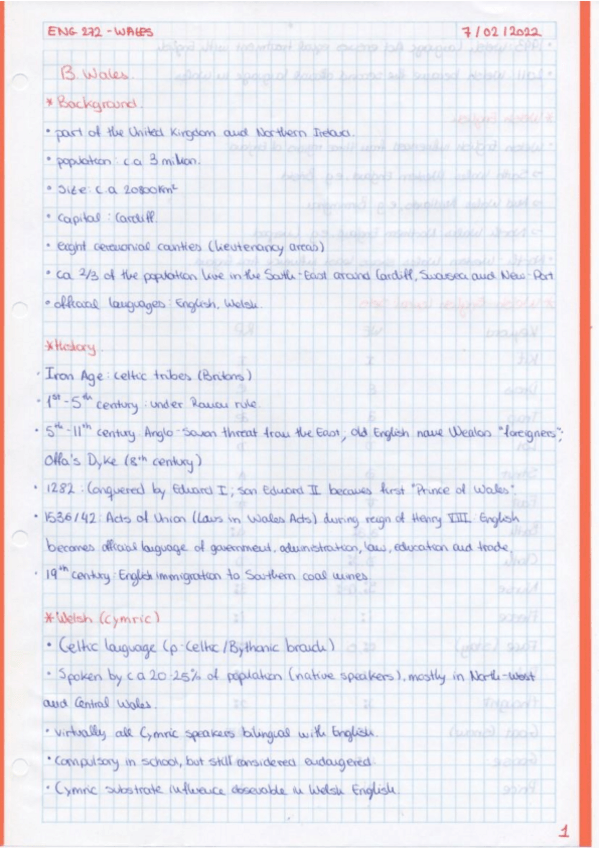 ENG 272 - WALES 7/02/2022
B. Wales
* Background.
• part of the United Kingdom and Northern Ireland.
• population: c.a 3 million.
• Size: c.a 20800km²
• capital: Cardiff.
• eight ceremonial counties (lieutenancy areas)
• ca 2/3 of the population live in the South-East around Cardiff, Swansea and New-Port
• official languages: English, Welsh.
* History.
• Iron Age: celtic tribes (Britons)
• 1st-5th century: under Roman rule.
• 5th-11th century Anglo-Saxon threat from the East; old English name Wealas "foreigners";
Offa's Dyke (8th century)
• 1282: Conquered by Edward I; son Edward II becomes first "Prince of Wales"
• 1536/42: Acts of Union (Laws in Wales Acts) during reign of Henry VIII. English
becomes official language of government, administration, law, education and trade,
• 19th century: English immigration to Southern coal mines.
* Welsh (Cymric)
• Celtic language (p-Celtic/Bythonic branch)
• Spoken by c.a 20-25% of population (native speakers), mostly in North-West
and Central Wales.
• virtually all Cymric speakers bilingual with English.
• compulsory in school, but still considered endangered.
• Cymric substrate influence observable in Welsh English.
1